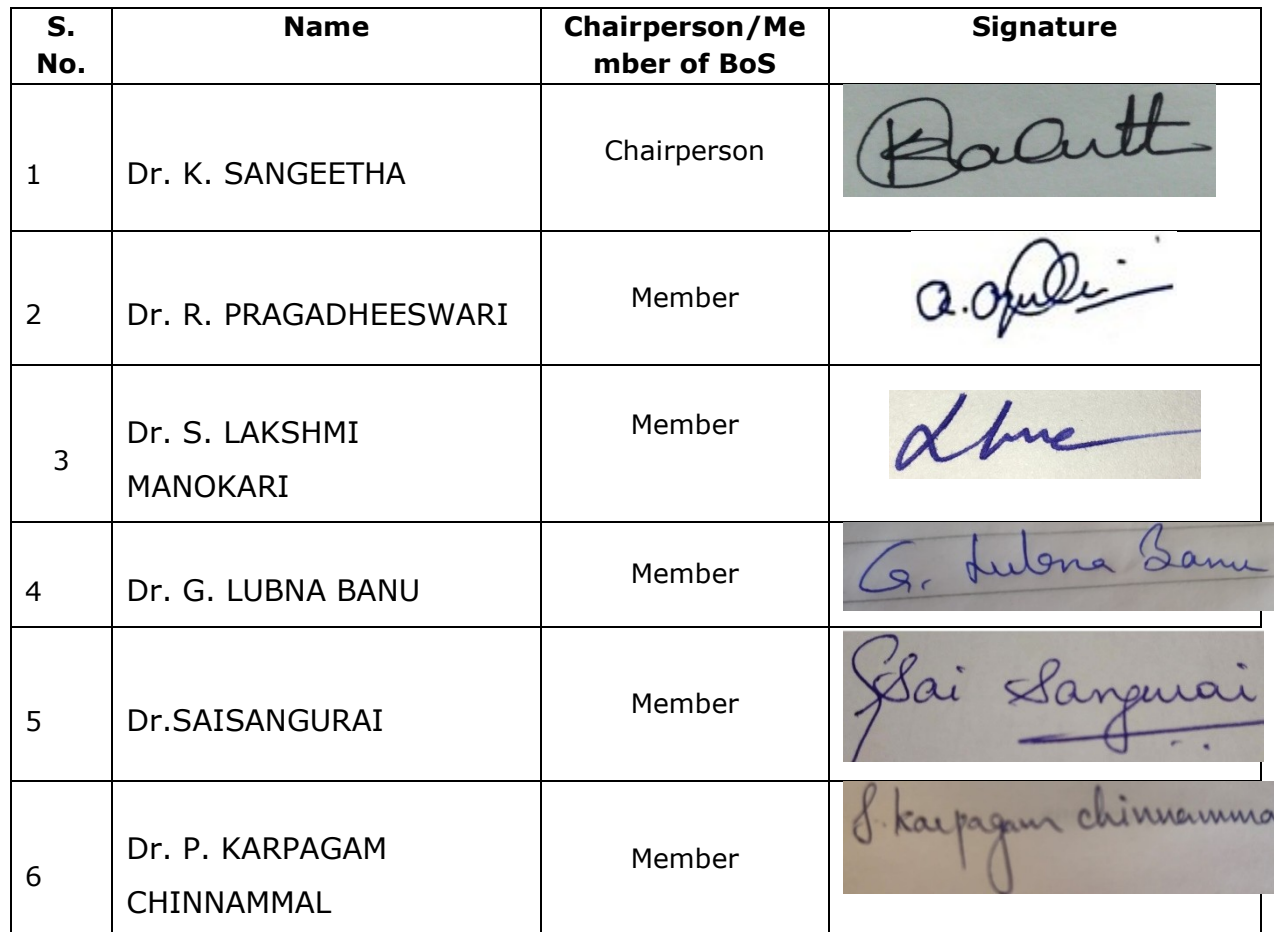 S. No. Name Chairperson/Me mber of BoS Signature
1 Dr. K. SANGEETHA Chairperson
2 Dr. R. PRAGADHEESWARI Member
3 Dr. S. LAKSHMI MANOKARI Member
4 Dr. G. LUBNA BANU Member G. Lubna Banu
5 Dr.SAISANGURAI Member Sai Sangurai
6 Dr. P. KARPAGAM CHINNAMMAL Member karpagam chinnamma